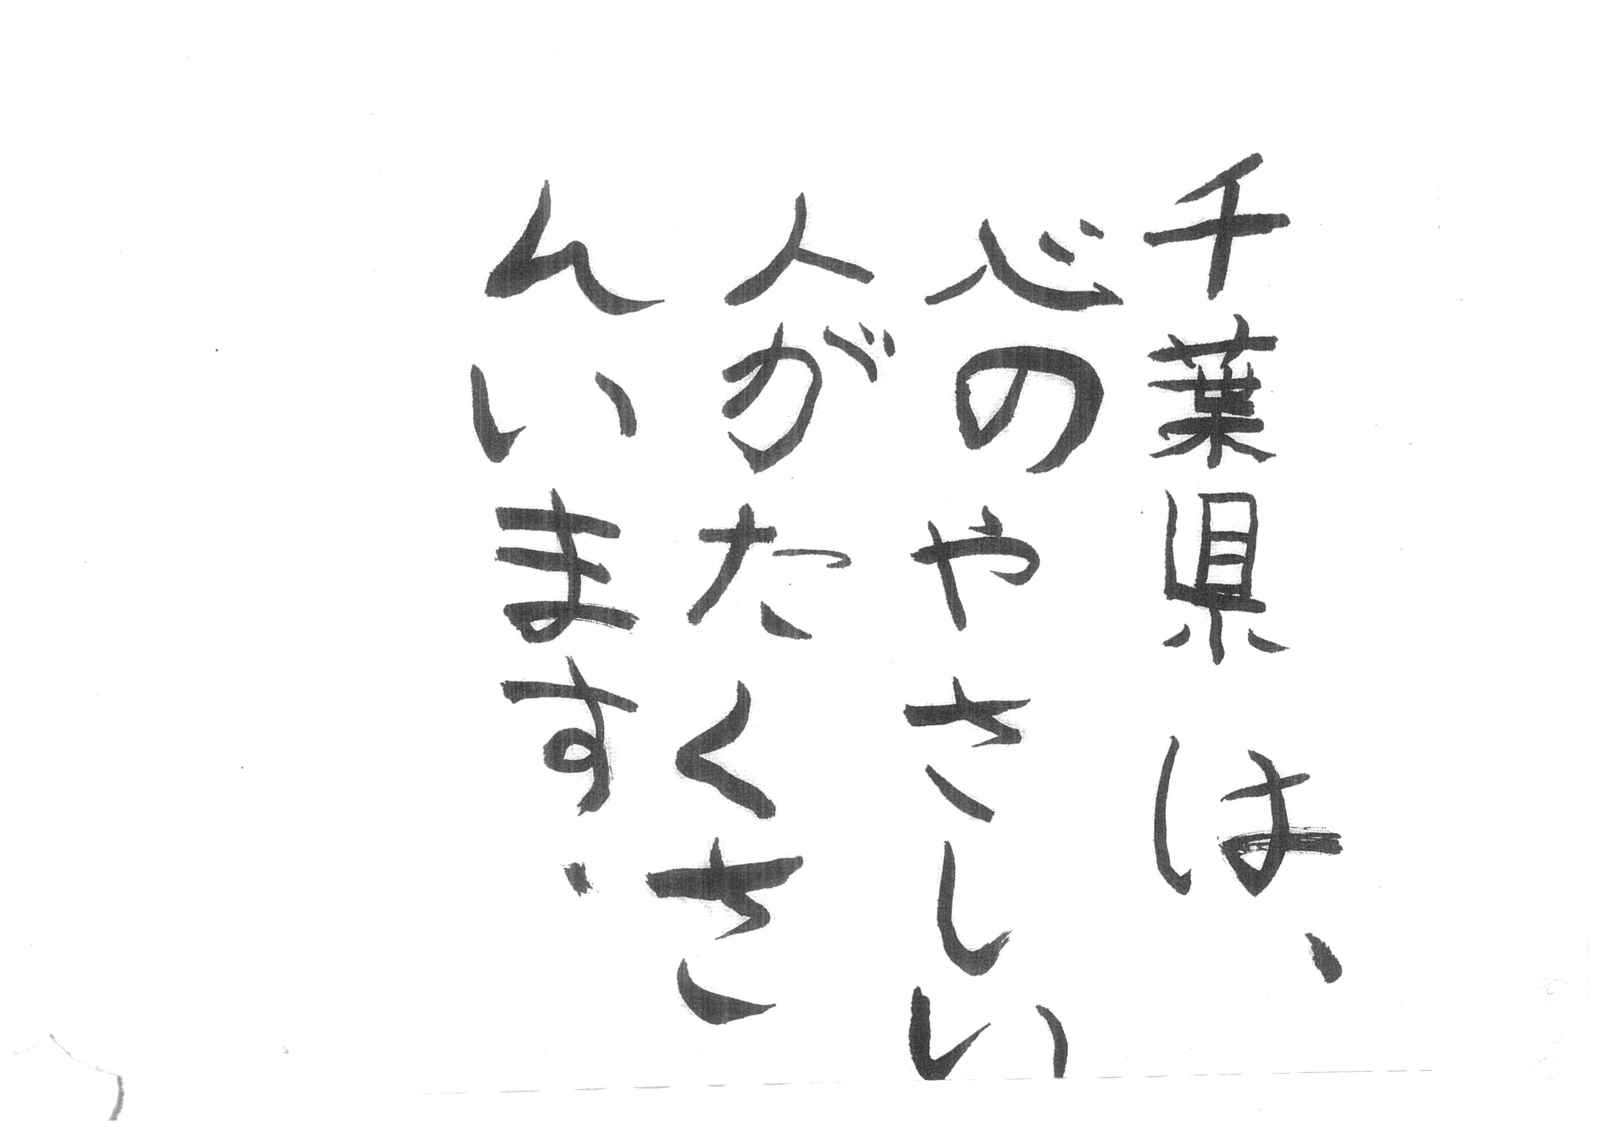 千葉県は、
心のやさしい
人がたくさ
んいます.